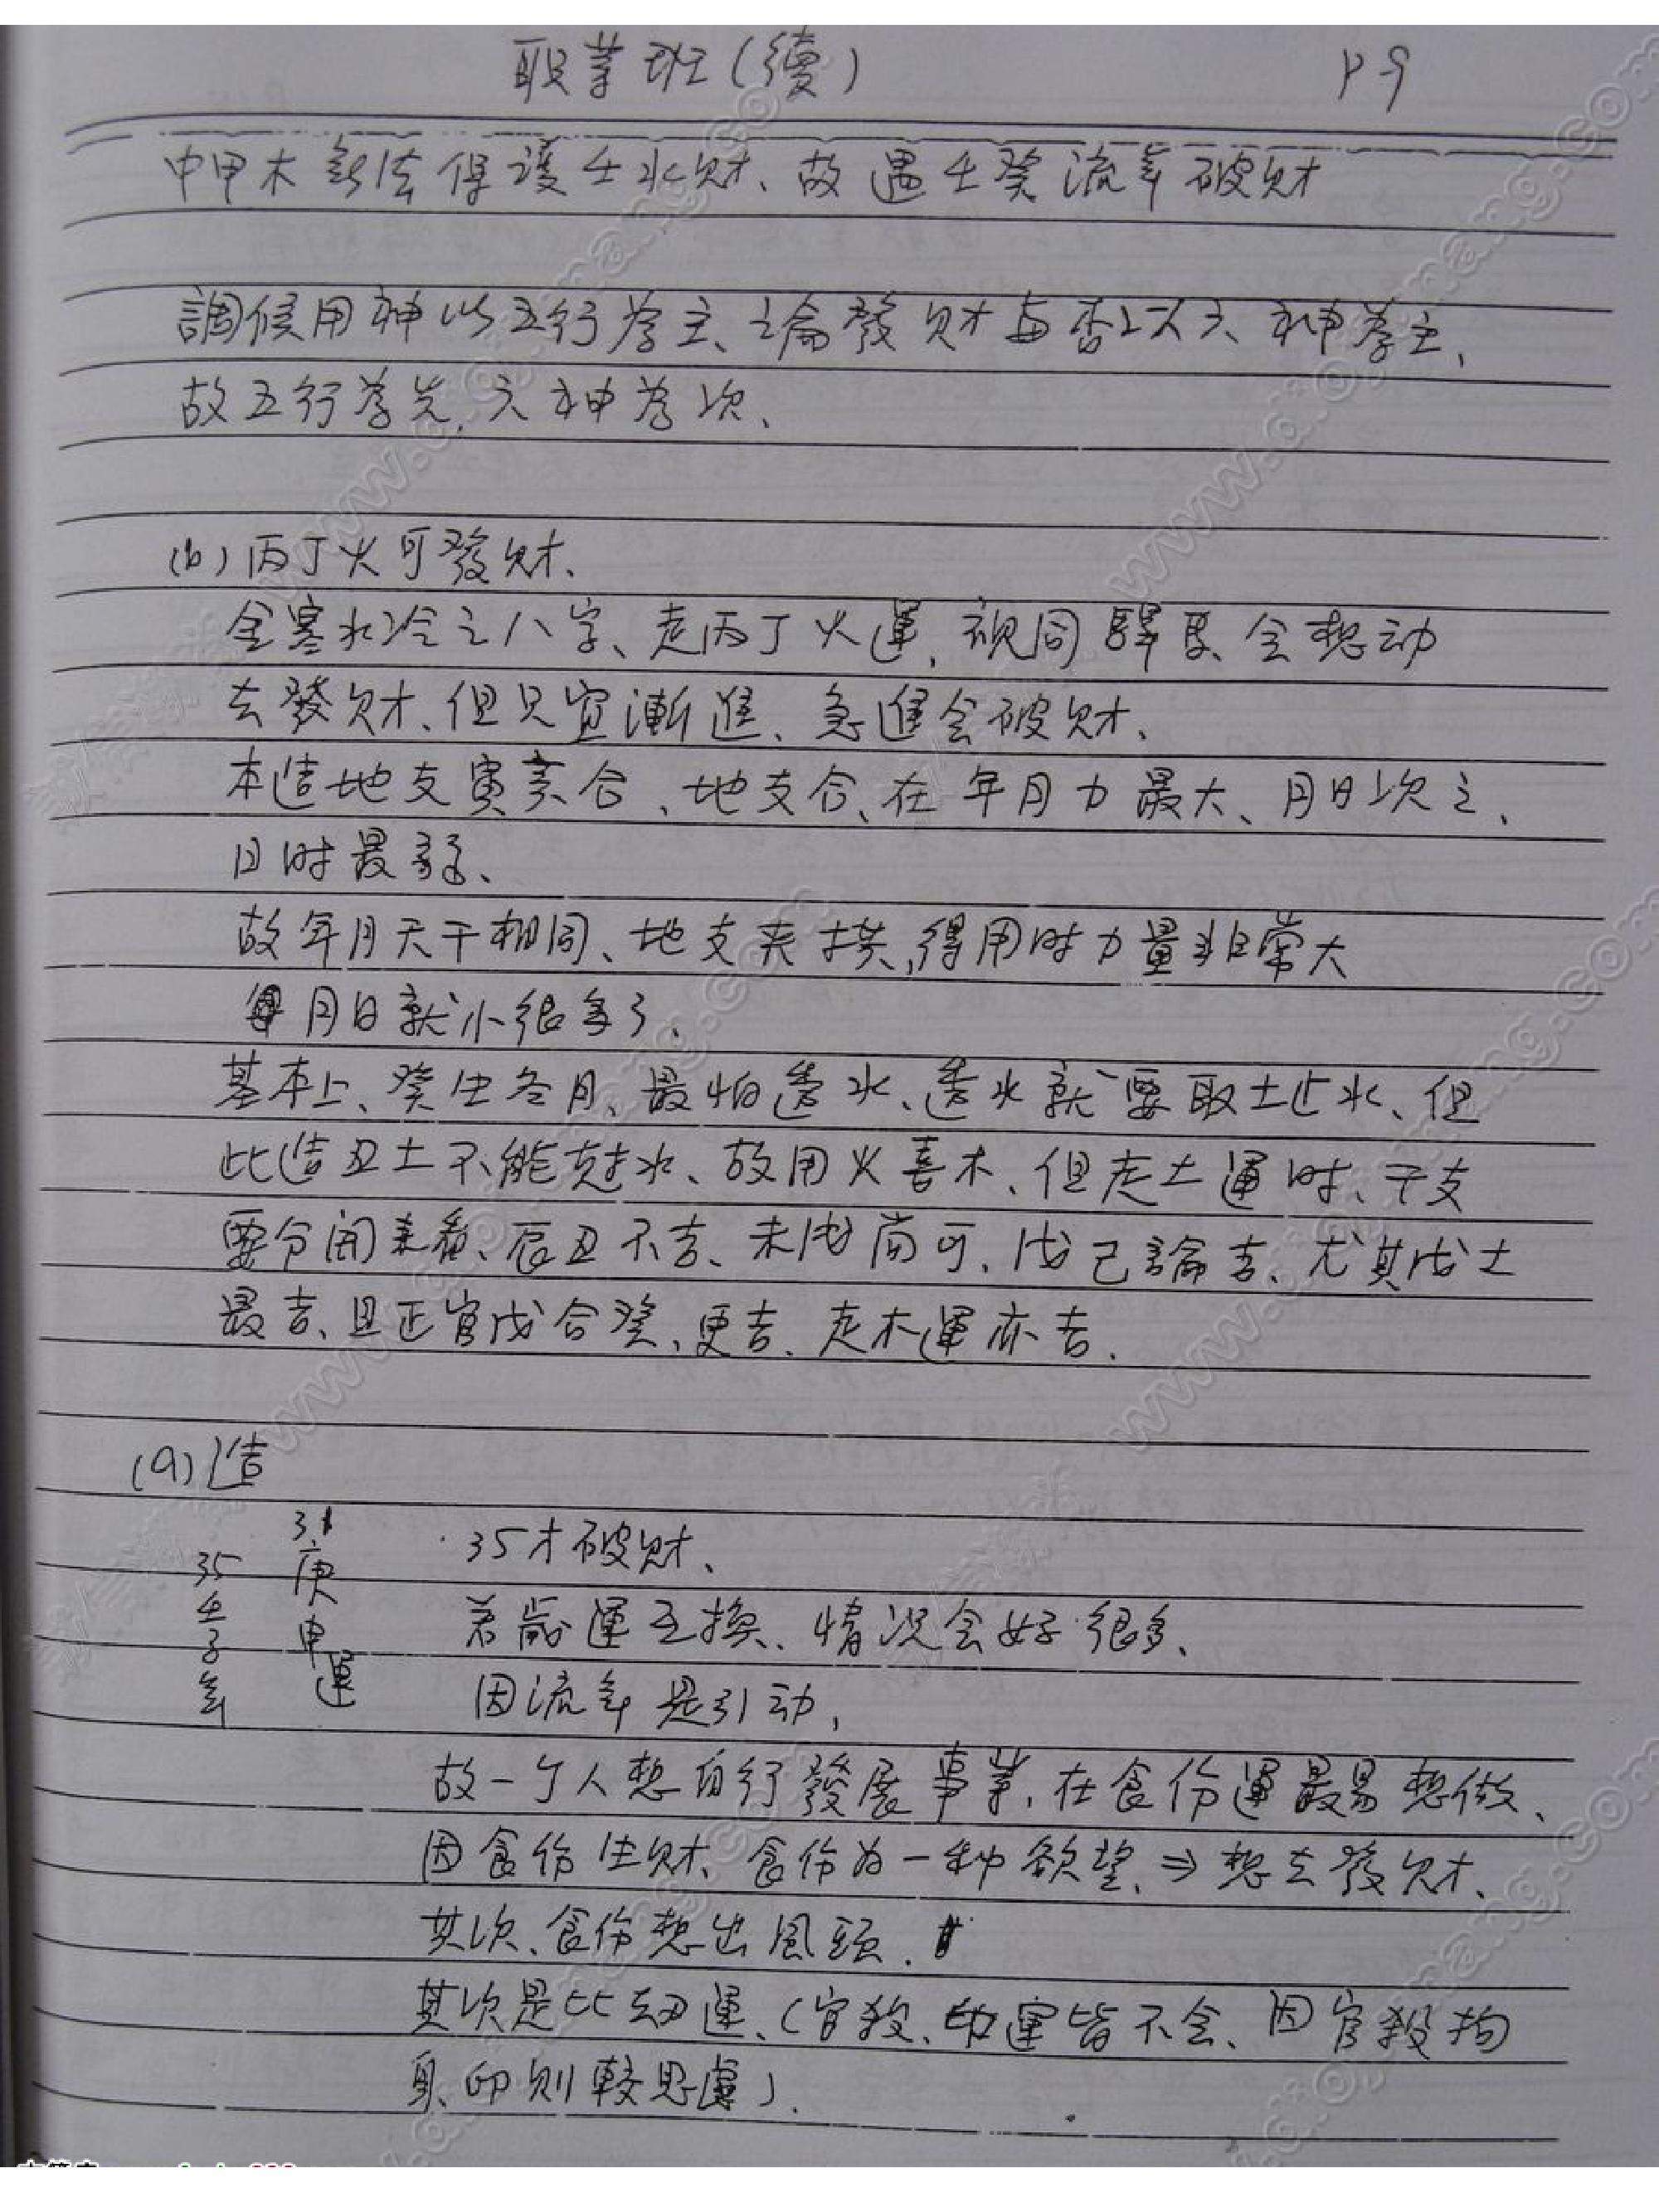 职業班(續) P9
中甲木無法保護壬水財、故遇壬癸流年破財
調候用神以五行為主、論發財與否以六神為主、
故五行為先、六神為次、
(b)丙丁火可發財、
金寒水冷之八字、走丙丁火運、視同驛馬、会想动
去發財、但只宜漸進、急進会破財、
本造地支寅亥合、地支合、在年月力最大、月日次之、
日时最弱、
故年月天干相同、地支夹拱,得用时力量非常大
月日就小很多了、
基本上、癸生冬月、最怕透水、透水就要取土止水、但
此造丑土不能尅水、故用火喜木、但走土運时、干支
要分開來看、辰丑不吉、未戌尚可、戊己論吉、尤其戊土
最吉、且正官戊合癸、更吉、走木運亦吉、
(a)造
31庚申運
35壬子年
35才破財、
若歲運互換、情况会好很多、
因流年是引动,
故一个人想自行發展事業,在食伤運最易想做、
因食伤生財、食伤为一种慾望、⇒想去發財、
其次、食伤想出風頭、
其次是比劫運、(官殺、印運皆不会、因官殺拘
身、印則較思慮)、
www.daojishang.com